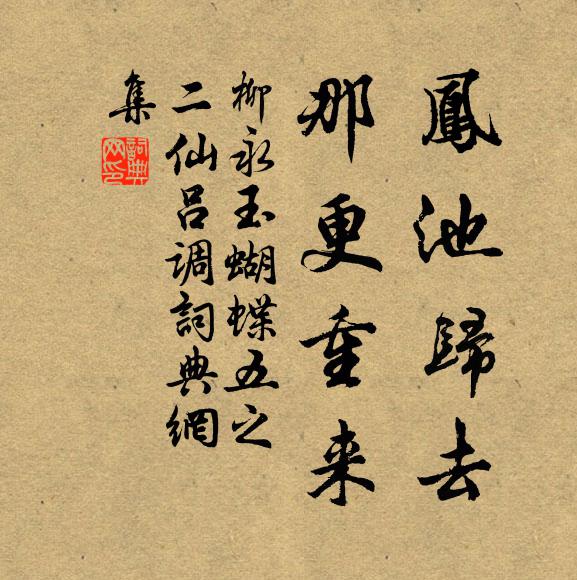 鳳池歸去
那更重来
柳永玉蝴蝶五之
二仙吕调詞典網
集
詞典
网印